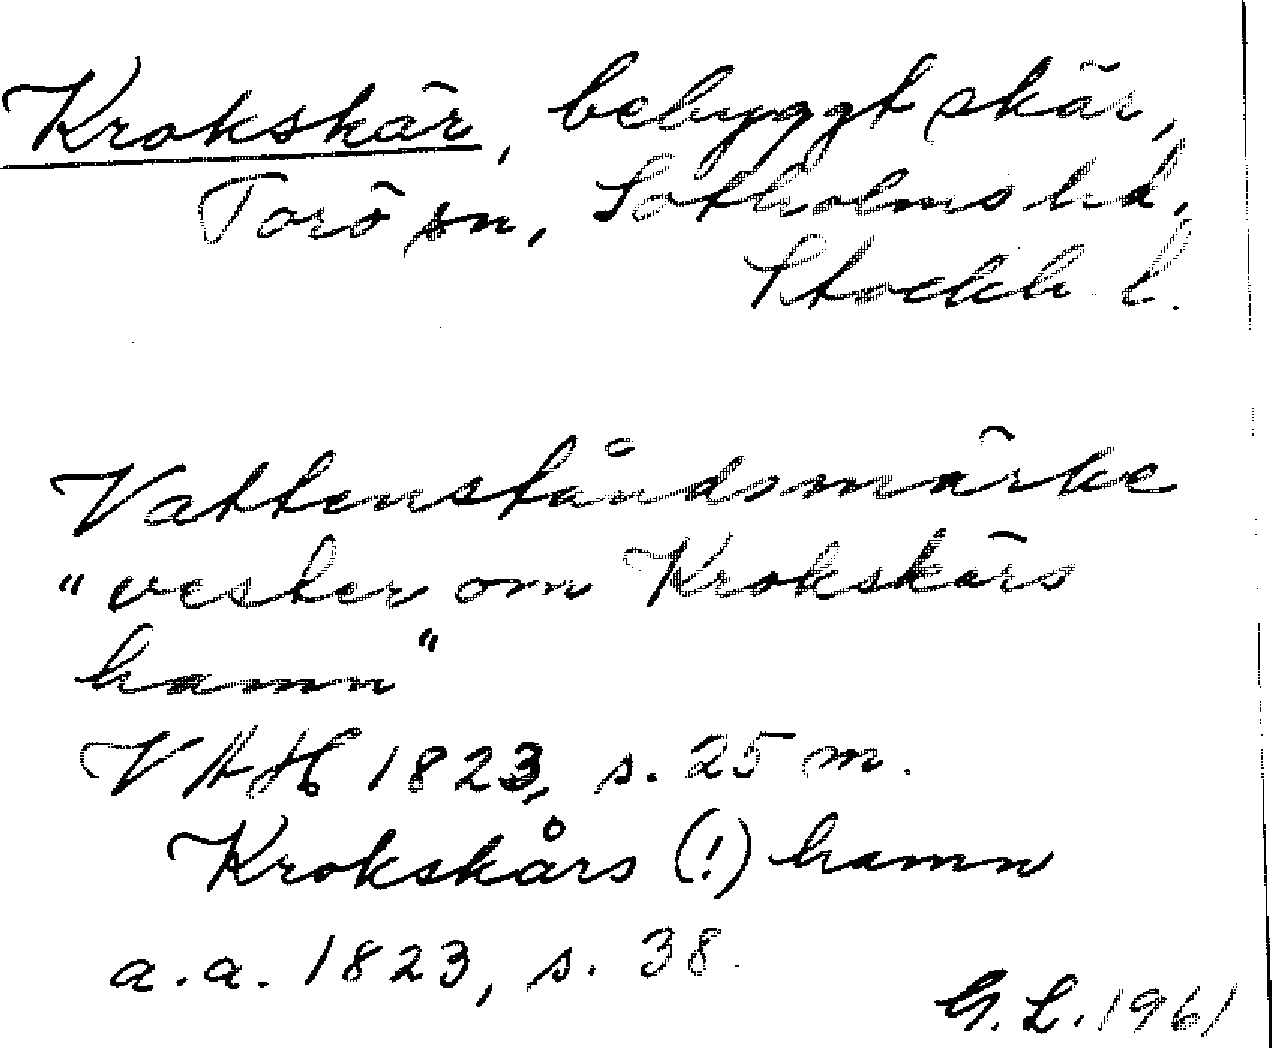 Krokskär, bebyggt skär,
Torö sn, Sotholms hd,
Stockh. l.
Vattenståndsmärke
"vester om Krokskärs
hamn"
VAH 1823, s. 25 m.
Krokskårs (!) hamn
a.a. 1823, s. 38.
G. L. 1961